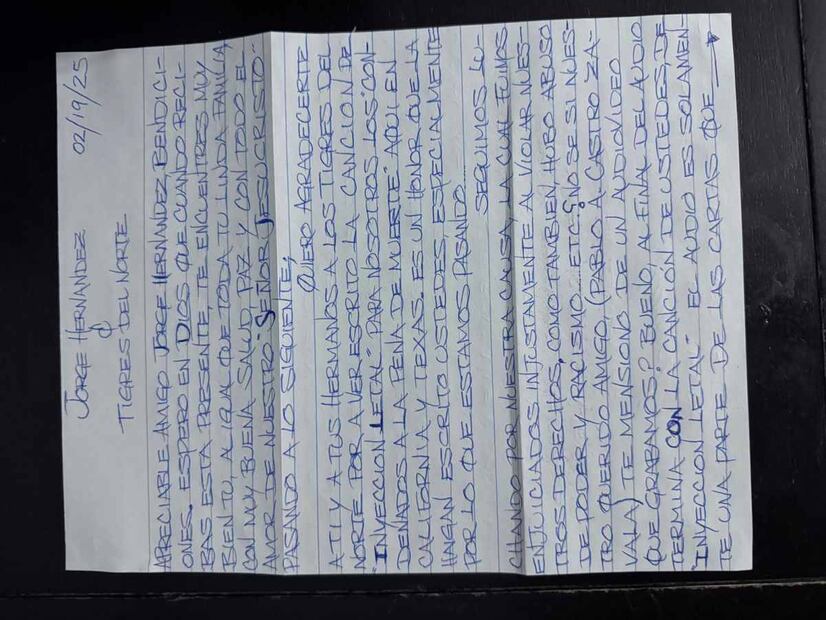 02/19/25
JORGE HERNANDEZ
O
TIGRES DEL NORTE
APRECIABLE AMIGO JORGE HERNANDEZ, BENDICI-
ONES. ESPERO EN DIOS QUE CUANDO RECI-
BAS ESTA PRESENTE TE ENCUENTRES MUY
BIEN TU, AL IGUAL QUE TODA TU LINDA FAMILIA
CON MUY BUENA SALUD, PAZ Y CON TODO EL
AMOR DE NUESTRO: SEÑOR JESUCRISTO.
PASANDO A LO SIGUIENTE;
QUIERO AGRADECERTE
A TI Y A TUS HERMANOS A LOS TIGRES DEL
NORTE POR A VER ESCRITO LA CANCION DE
"INYECCION LETAL" PARA NOSOTROS LOS CON-
DENADOS A LA PENA DE MUERTE AQUI EN
CALIFORNIA Y TEXAS. ES UN HONOR QUE LA
HAIGAN ESCRITO USTEDES, ESPECIALMENTE
POR LO QUE ESTAMOS PASANDO.
SEGUIMOS LU-
CHANDO POR NUESTRA CAUSA, LA CUAL FUIMOS
ENJUICIADOS INJUSTAMENTE AL VIOLAR NUES-
TROS DERECHOS, COMO TAMBIEN, HUBO ABUSO
DE PODER Y RACISMO... ETC. ¿NO SE SI NUES-
TRO QUERIDO AMIGO, (PABLO A. CASTRO ZA-
VALA) TE MENSIONO DE UN AUDIO/VIDEO
QUE GRABAMOS? BUENO, AL FINAL DEL AUDIO
TERMINA CON LA CANCION DE USTEDES, DE
"INYECCION LETAL" EL AUDIO ES SOLAMEN-
TE UNA PARTE DE LAS CARTAS QUE →